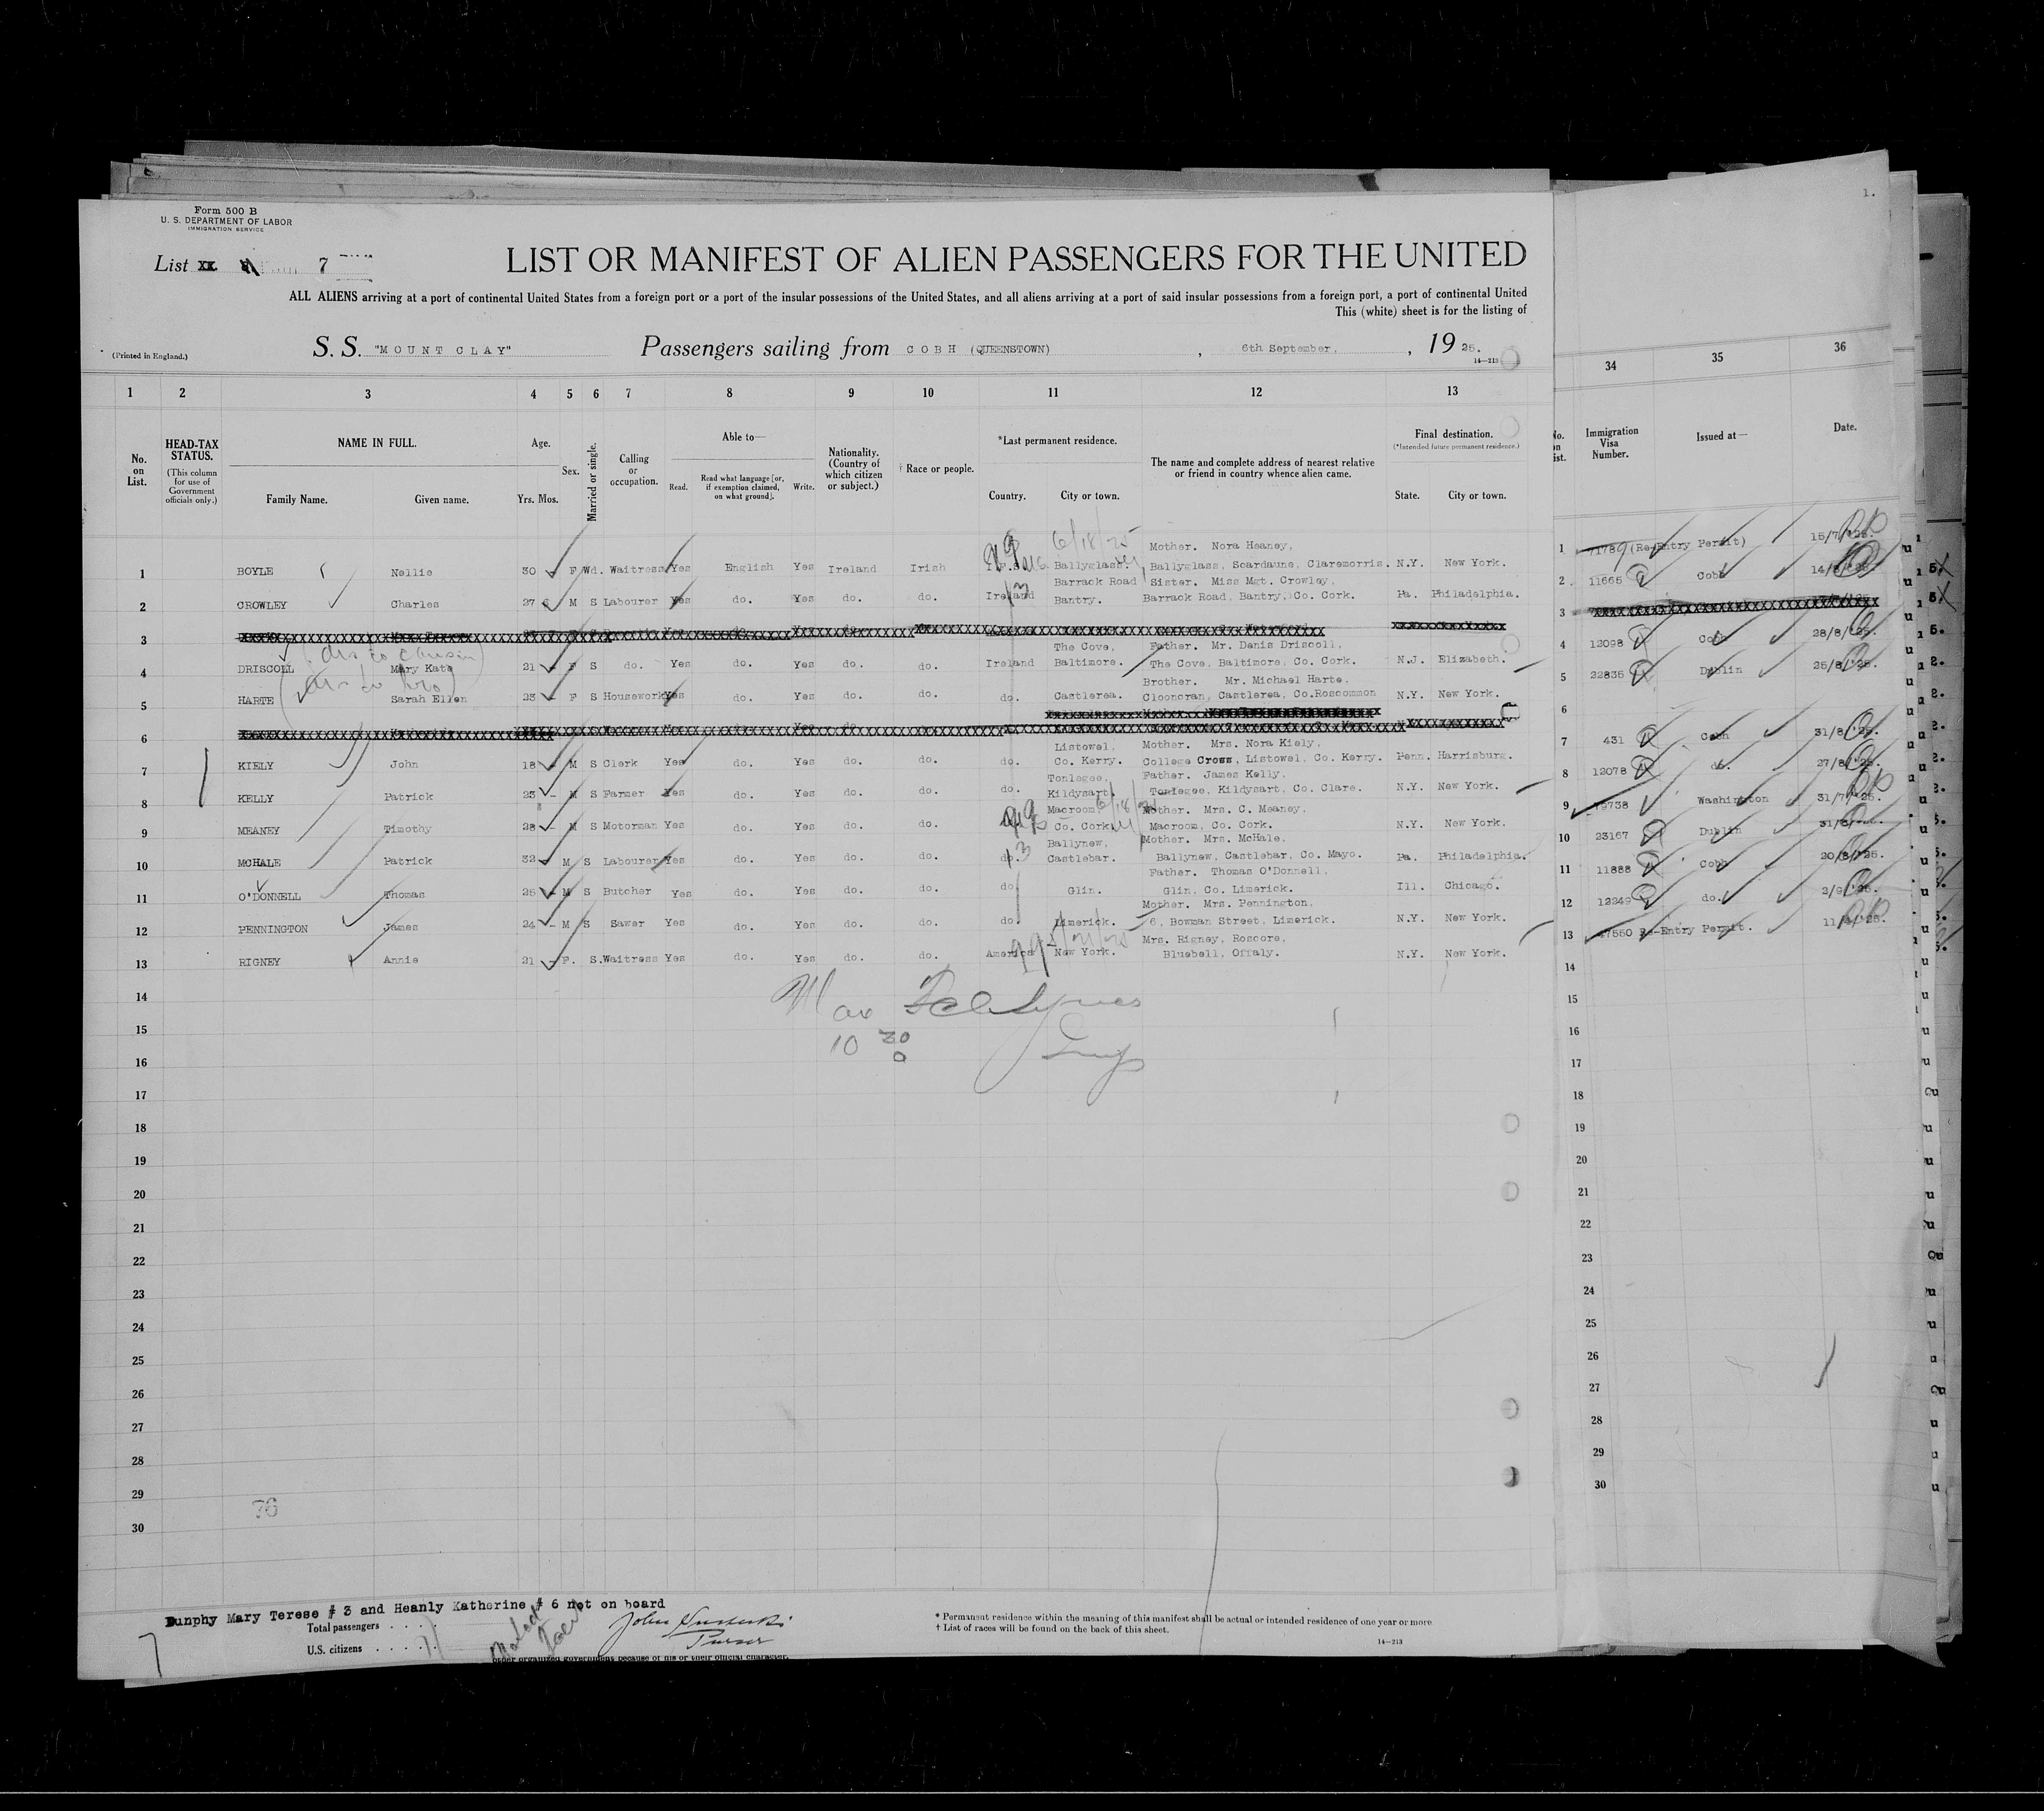 Form 500 B
U. S. DEPARTMENT OF LABOR
IMMIGRATION SERVICE
List 7
LIST OR MANIFEST OF ALIEN PASSENGERS FOR THE UNITED
ALL ALIENS arriving at a port of continental United States from a foreign port or a port of the insular possessions of the United States, and all aliens arriving at a port of said insular possessions from a foreign port, a port of continental United
This (white) sheet is for the listing of
(Printed in England.)
S. S. "MOUNT CLAY" Passengers sailing from COBH (QUEENSTOWN), 6th September, 1925.
14—213
1 2 3 4 5 6 7 8 9 10 11 12 13
No. on List.
HEAD-TAX STATUS.
(This column for use of Government officials only.)
NAME IN FULL.
Family Name. Given name.
Age.
Yrs. Mos.
Sex.
Married or single.
Calling or occupation.
Able to—
Read. Read what language [or, if exemption claimed, on what ground]. Write.
Nationality. (Country of which citizen or subject.)
† Race or people.
*Last permanent residence.
Country. City or town.
The name and complete address of nearest relative or friend in country whence alien came.
Final destination.
(*Intended future permanent residence.)
State. City or town.
6/18/25
Mother. Nora Heaney,
1 BOYLE Nellie 30 - F Wd. Waitress Yes English Yes Ireland Irish Ballyglass, Ballyglass, Scardaune, Claremorris. N.Y. New York.
Barrack Road Sister. Miss Mgt. Crowley,
2 CROWLEY Charles 27 6 M S Labourer Yes do. Yes do. do. Ireland Bantry. Barrack Road, Bantry, Co. Cork. Pa. Philadelphia.
3
The Cove, Father. Mr. Denis Driscoll,
4 DRISCOLL Mary Kate 21 - F S do. Yes do. Yes do. do. Ireland Baltimore. The Cove, Baltimore, Co. Cork. N.J. Elizabeth.
Brother. Mr. Michael Harte,
5 HARTE Sarah Ellen 23 - F S Housework Yes do. Yes do. do. do. Castlerea. Clooncran, Castlerea, Co.Roscommon N.Y. New York.
6
Listowel, Mother. Mrs. Nora Kiely,
7 KIELY John 18 - M S Clerk Yes do. Yes do. do. do. Co. Kerry. College Cross, Listowel, Co. Kerry. Penn. Harrisburg.
Tonlegee, Father. James Kelly,
8 KELLY Patrick 23 - M S Farmer Yes do. Yes do. do. do. Kildysart. Tonlegee, Kildysart, Co. Clare. N.Y. New York.
Macroom, Mother. Mrs. C. Meaney,
9 MEANEY Timothy 28 - M S Motorman Yes do. Yes do. do. Co. Cork. Macroom, Co. Cork. N.Y. New York.
Ballynew, Mother. Mrs. McHale,
10 MCHALE Patrick 32 M S Labourer Yes do. Yes do. do. do. Castlebar. Ballynew, Castlebar, Co. Mayo. Pa. Philadelphia.
Father. Thomas O'Donnell,
11 O'DONNELL Thomas 25 - M S Butcher Yes do. Yes do. do. do. Glin. Glin, Co. Limerick. Ill. Chicago.
Mother. Mrs. Pennington,
12 PENNINGTON James 24 - M S Sawer Yes do. Yes do. do. do. Limerick. 6, Bowman Street, Limerick. N.Y. New York.
Mrs. Rigney, Roscore,
13 RIGNEY Annie 21 - F. S. Waitress Yes do. Yes do. do. America New York. Bluebell, Offaly. N.Y. New York.
14
15
16
17
18
19
20
21
22
23
24
25
26
27
28
29
30
10 30
76
Dunphy Mary Terese # 3 and Heanly Katherine # 6 not on board
Total passengers . . . . .
U.S. citizens . . . . .
Purser
* Permanent residence within the meaning of this manifest shall be actual or intended residence of one year or more.
† List of races will be found on the back of this sheet.
14—213
1.
34 35 36
Immigration Visa Number. Issued at— Date.
1 71789 (Re-Entry Permit) 15/7/'25.
2 11665 Cobh
3
4 12098 Cobh 28/8/'25.
5 22835 Dublin 25/8/'25.
6
7 431 Cobh 31/8/'25.
8 12078 do. 27/8/'25.
9 79738 Washington 31/7/'25.
10 23167 Dublin
11 11888 Cobh 20/8/'25.
12 12249 do. 2/9/'25.
13 47550 Re-Entry Permit.
14
15
16
17
18
19
20
21
22
23
24
25
26
27
28
29
30